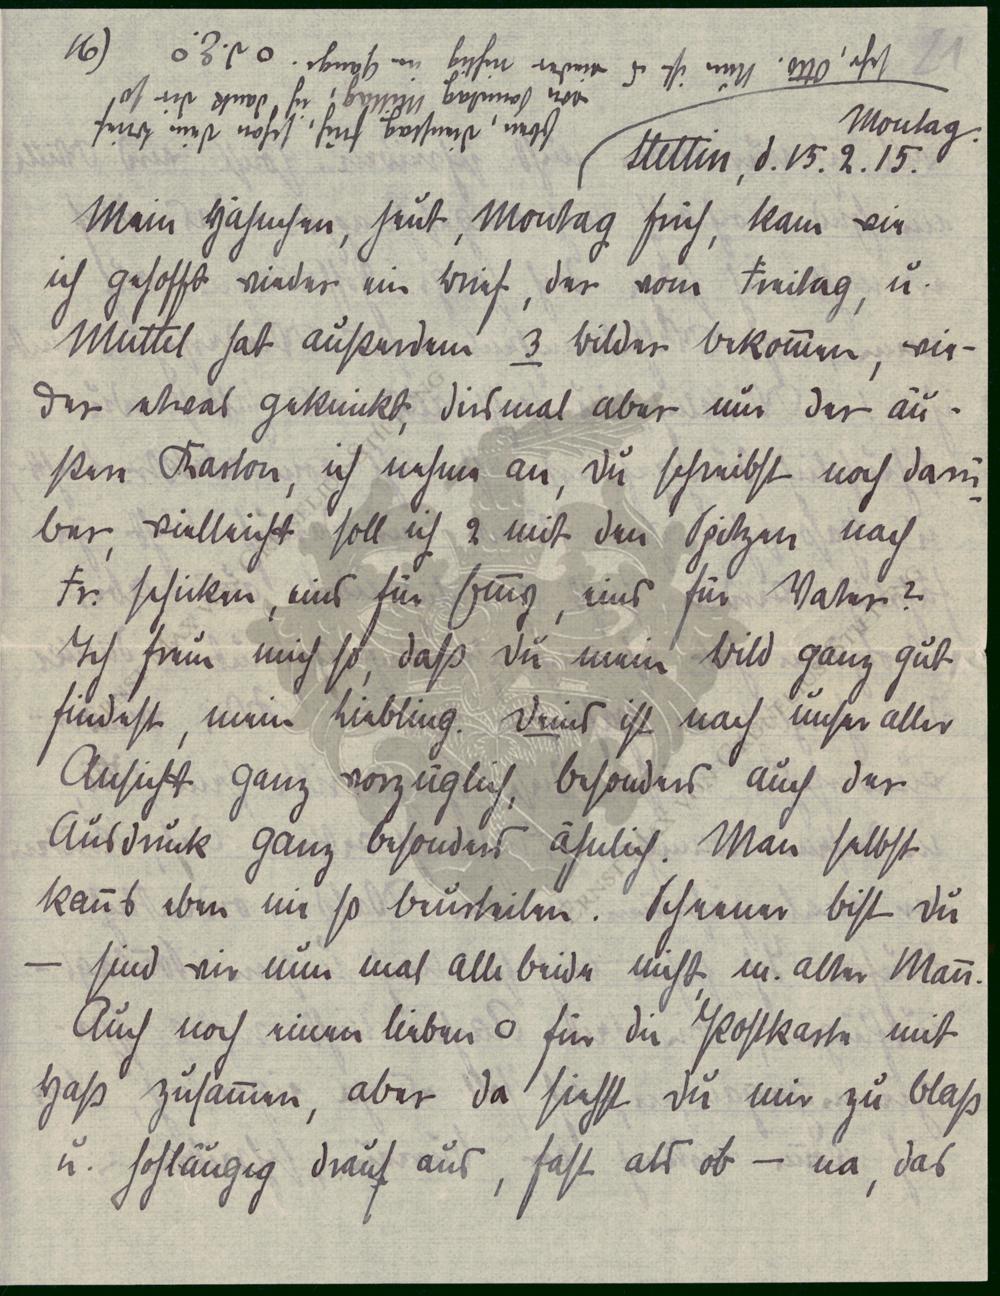 16)
21
Eben, Dienstag früh, schon dein Brief
von Sonntag Mittag, ich dank dir so
sehr, Otto. Nun ist es wieder richtig im Gange. o d. E. o
Montag.
Stettin, d. 15. 2. 15.
Mein Hähnchen, heut, Montag früh, kam wie
ich gehofft wieder ein Brief, der vom Freitag, u.
Muttel hat außerdem 3 Bilder bekom̅en, wie-
der etwas geknickt, diesmal aber nur der äu-
ßere Karton, ich nehme an, du schreibst noch darü-
ber, vielleicht soll ich 2 mit den Spitzen nach
Fr. schicken, eins für, eins für Vater?
Ich freue mich so, daß du mein Bild ganz gut
findest, mein Liebling. Deins ist nach unser aller
Ansicht ganz vorzüglich, besonders auch der
Ausdruck ganz besonders ähnlich. Man selbst
kan̅s eben nie so beurteilen. Scheener bist du
— sind wir nun mal alle beide nicht, m. alter Man̅.
Auch noch einen lieben o für die Postkarte mit
Haß zusam̅en, aber da siehst du mir zu blaß
u. hohläugig drauf aus, fast als ob — na, das